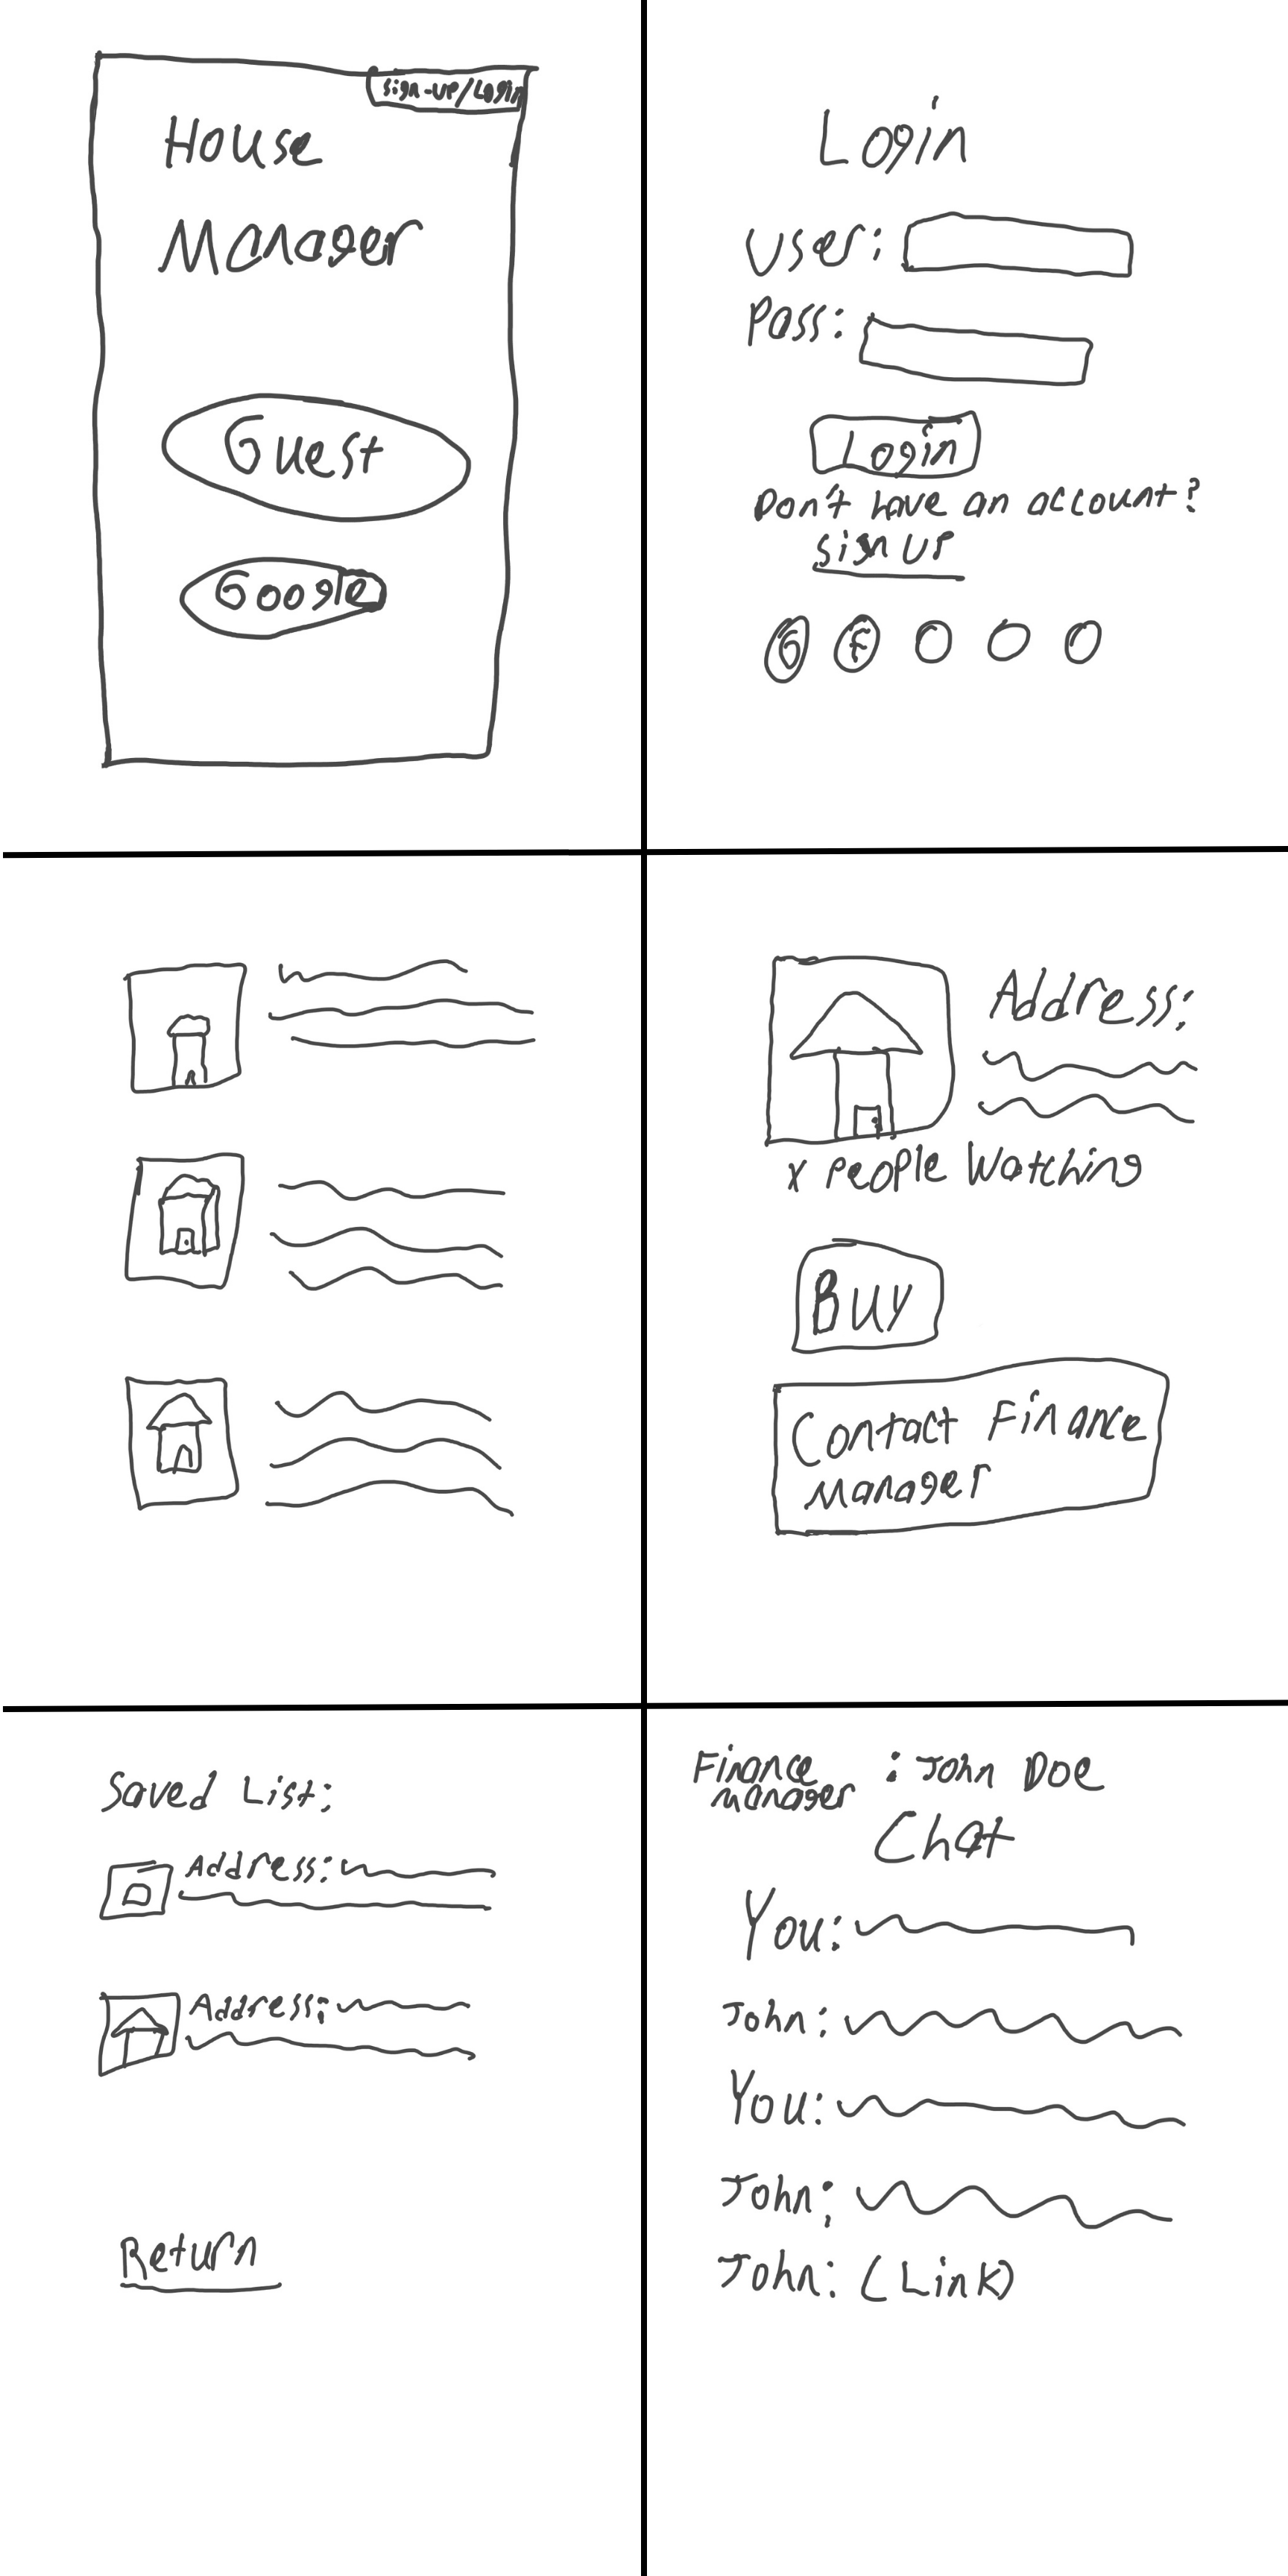 Sign-up/Login
House
Manager
Guest
Google
Login
User:
Pass:
Login
Don't have an account?
sign up
G f
Address:
x People Watching
Buy
Contact Finance
Manager
Saved List:
Address:
Address:
Return
Finance : John Doe
Manager
Chat
You:
John:
You:
John:
John: (Link)